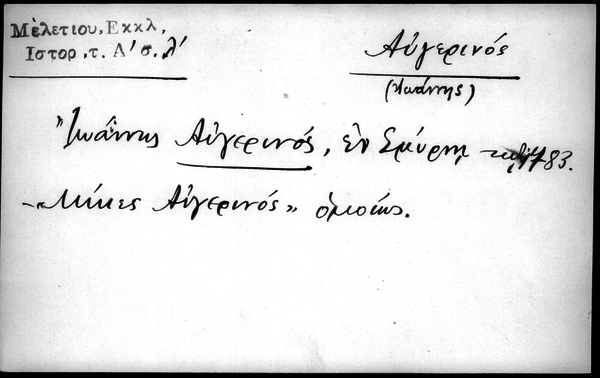 Μὲλετιου, Εκκλ,
Ιστορ, τ. Α' σ. λ'
Αὐγερινός
(Ἰωάννης)
"Ἰωάννης Αὐγερινός, ἐν Σμύρνῃ, 1783.
– «Μίκες Αὐγερινός» ὁμοίως.